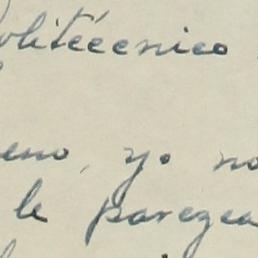 olitécnico
eno, yo no
le parezca